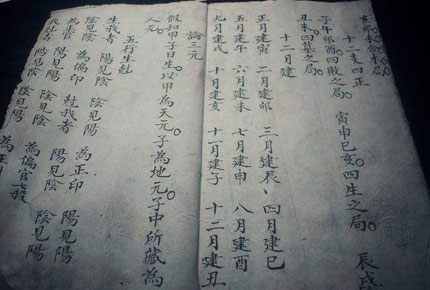 亥卯未合木局
十二支四正
子午卯酉四敗之局 寅申巳亥四生之局 辰戌
丑未四墓之局
十二月建
正月建寅 二月建卯 三月建辰 四月建巳
五月建午 六月建未 七月建申 八月建酉
九月建戌 十月建亥 十一月建子 十二月建丑
論三元
假如甲子日生以甲為天元子為地元子中所藏為
人元
五行生尅
生我者 陰見陽 為正印 陽見陰
陰見陰 為偏印 陽見陽
尅我者 陽見陰 陰見陽
陽見陽 為偏官七殺